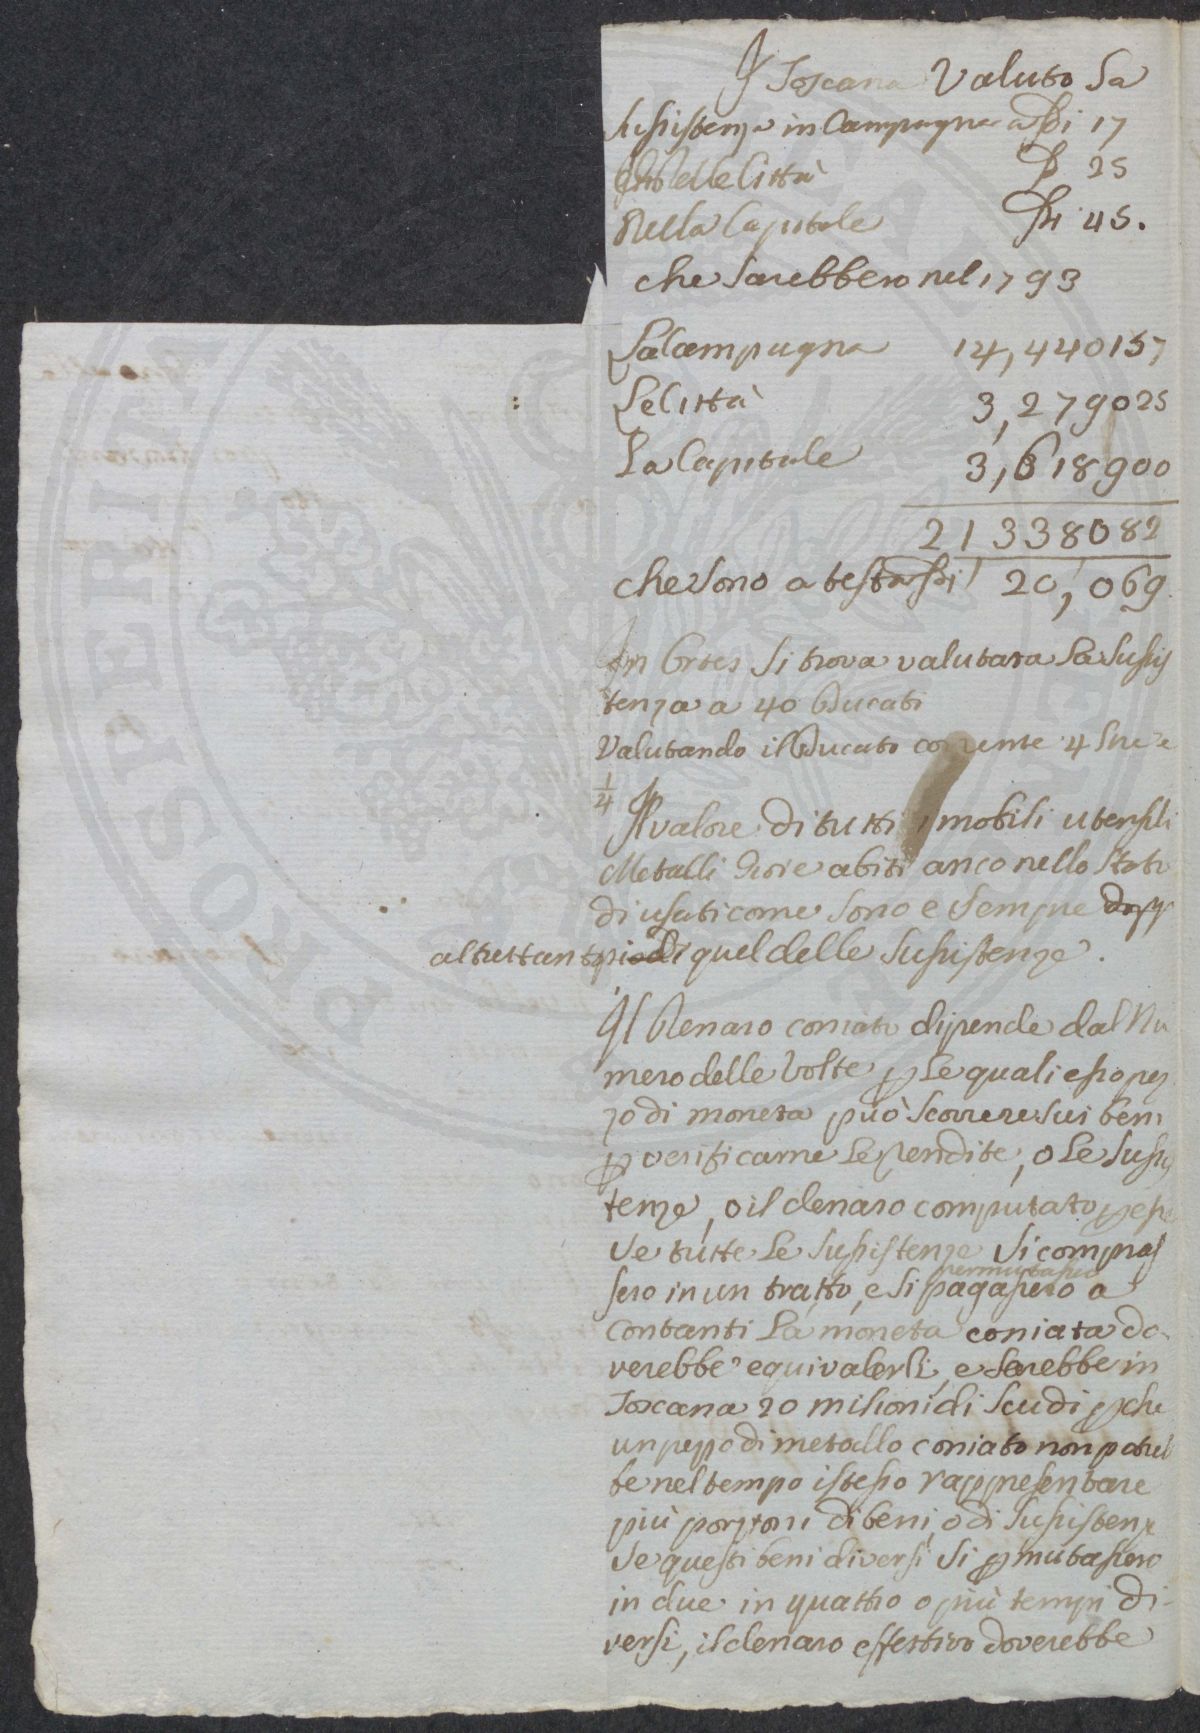 In Toscana Valuto la
sussistenza in Campagna a Sdi 17
nelle Città 25
Nella Capitale Sdi 45.
che sarebbero nel 1793
La Campagna 14,440157
Le Città 3,279025
La Capitale 3,618900
21338082
che sono a testa Sdi 20,069
In si trova valutata la sussis
tenza a 40 Ducati
Valutando il Ducato corrente 4 lire e
1/4
Il valore di tutti i mobili utensili
Metalli Gioie abiti anco nello stato
di usati come sono e sempre
altrettanto quel delle sussistenze.
Il Denaro coniato dipende dal Nu
mero delle volte p le quali esso pez
zo di moneta può scorrere sui beni
p verificarne le rendite, o le sussis
tenze, o il denaro computato p
se tutte le sussistenze si compras
sero in un tratto, e si pagassero a
permutassero
contanti La moneta coniata do
verebbe equivalerli, e sarebbe in
Toscana 20 milioni di scudi pche
un pezzo di metallo coniato non potreb
be nel tempo istesso rappresentare
più porzioni di beni, o di sussistenze
se questi beni diversi si pmutassero
in due in quattro o più tempi di-
versi, il denaro effettivo doverebbe
PROSPERITA